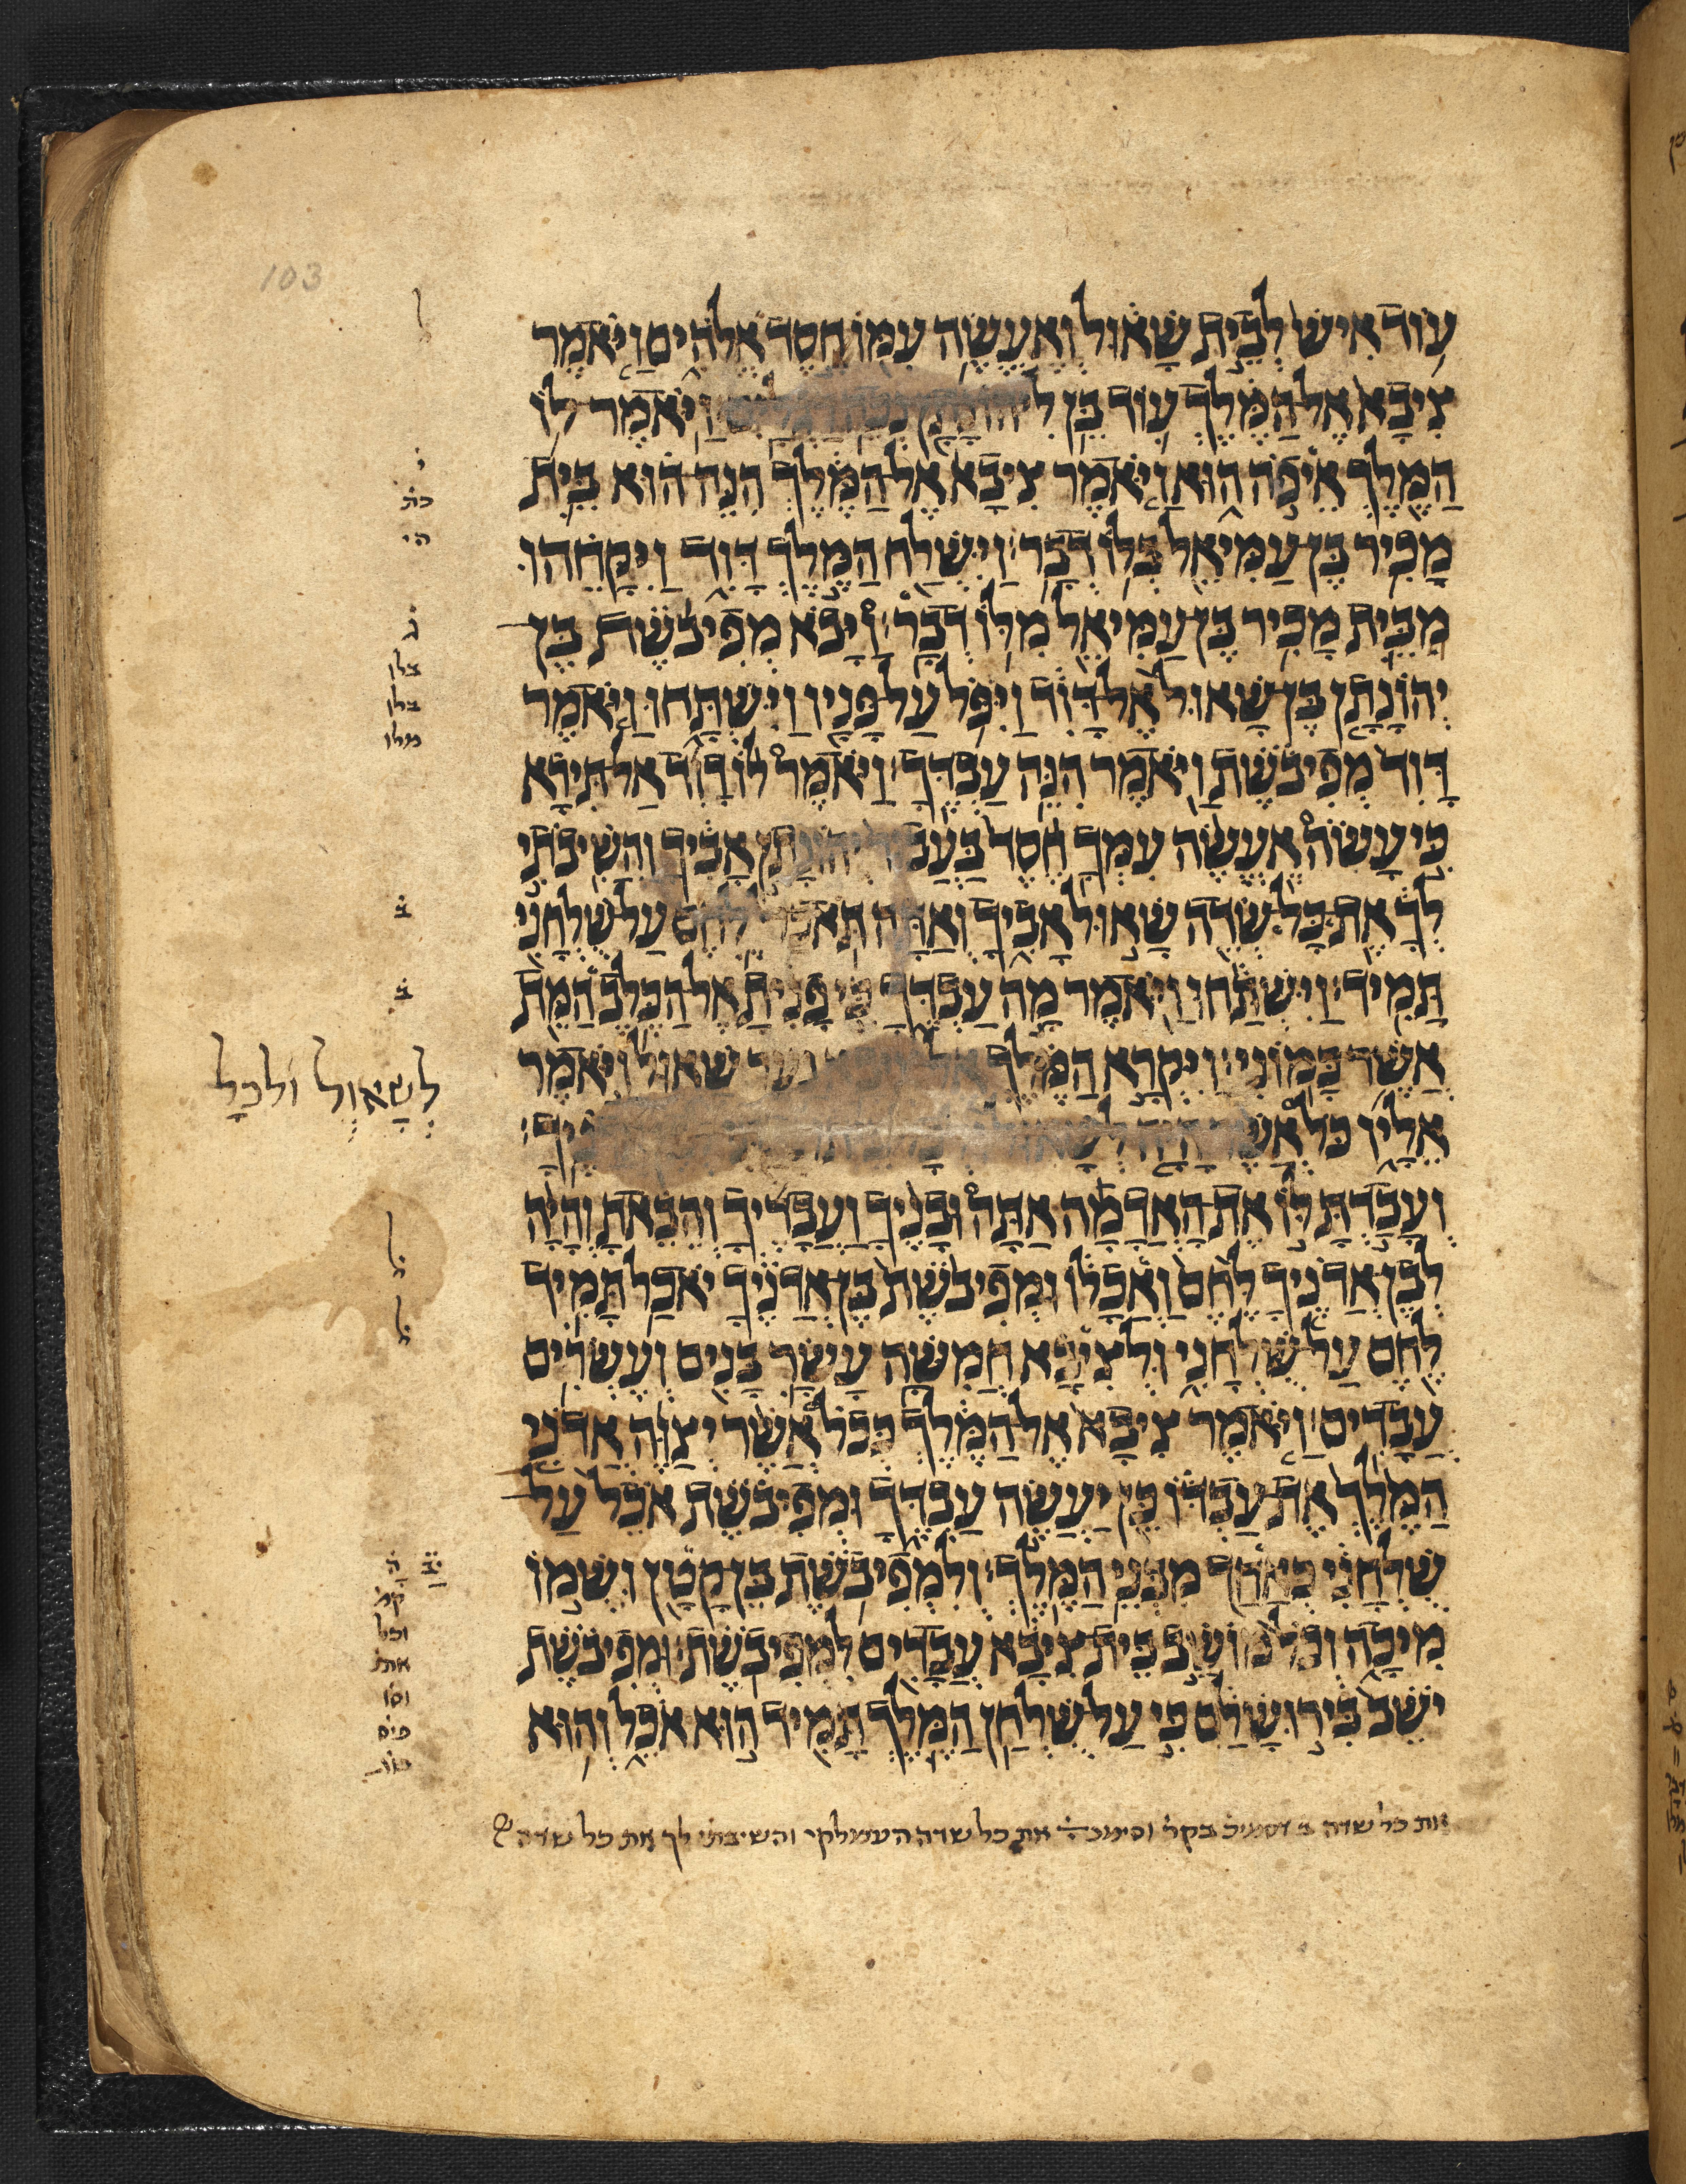 103
עוד איש לבית שאול ואעשה עמו חסד אלהים ויאמר
ציבא אל המלך עוד בן ליהונתן נכה רגלים ויאמר לו
המלך איפה הוא ויאמר ציבא אל המלך הנה הוא בית
מכיר בן עמיאל בלו דבר׃ וישלח המלך דוד ויקחהו
מבית מכיר בן עמיאל מלו דבר׃ ויבא מפיבשת בן
יהונתן בן שאול אל דוד ויפל על פניו וישתחו ויאמר
דוד מפיבשת ויאמר הנה עבדך׃ ויאמר לו דוד אל תירא
כי עשה אעשה עמך חסד בעבור יהונתן אביך והשיבתי
לך את כל שדה שאול אביך ואתה תאכל לחם על שלחני
תמיד׃ וישתחו ויאמר מה עבדך כי פנית אל הכלב המת
אשר כמוני׃ ויקרא המלך אל נער שאול ויאמר
אליו כל אשר היה לשאול
ועבדת לו את האדמה אתה ובניך ועבדיך והבאת והיה
לבן אדניך לחם ואכלו ומפיבשת בן אדניך יאכל תמיד
לחם על שלחני ולציבא חמשה עשר בנים ועשרים
עבדים׃ ויאמר ציבא אל המלך ככל אשר יצוה אדני
המלך את עבדו כן יעשה עבדך ומפיבשת אכל על
שלחני כאחד מבני המלך׃ ולמפיבשת בן קטן ושמו
מיכה וכל מושב בית ציבא עבדים למפיבשת׃ ומפיבשת
ישב בירושלם כי על שלחן המלך תמיד הוא אכל והוא
לשאול ולכל
את כל שדה ב בקר את כל שדה העמלקי והשיבתי לך את כל שדה